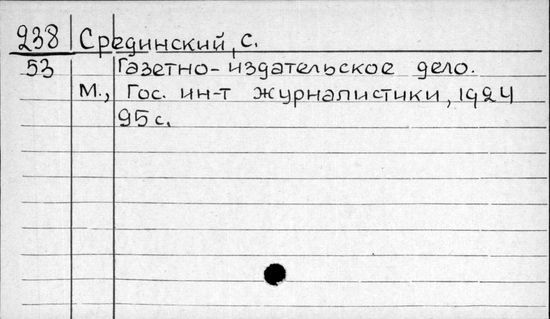 238 Срединский, с.
53 Газетно-издательское дело.
М., Гос. ин-т журналистики, 1924
95 с.